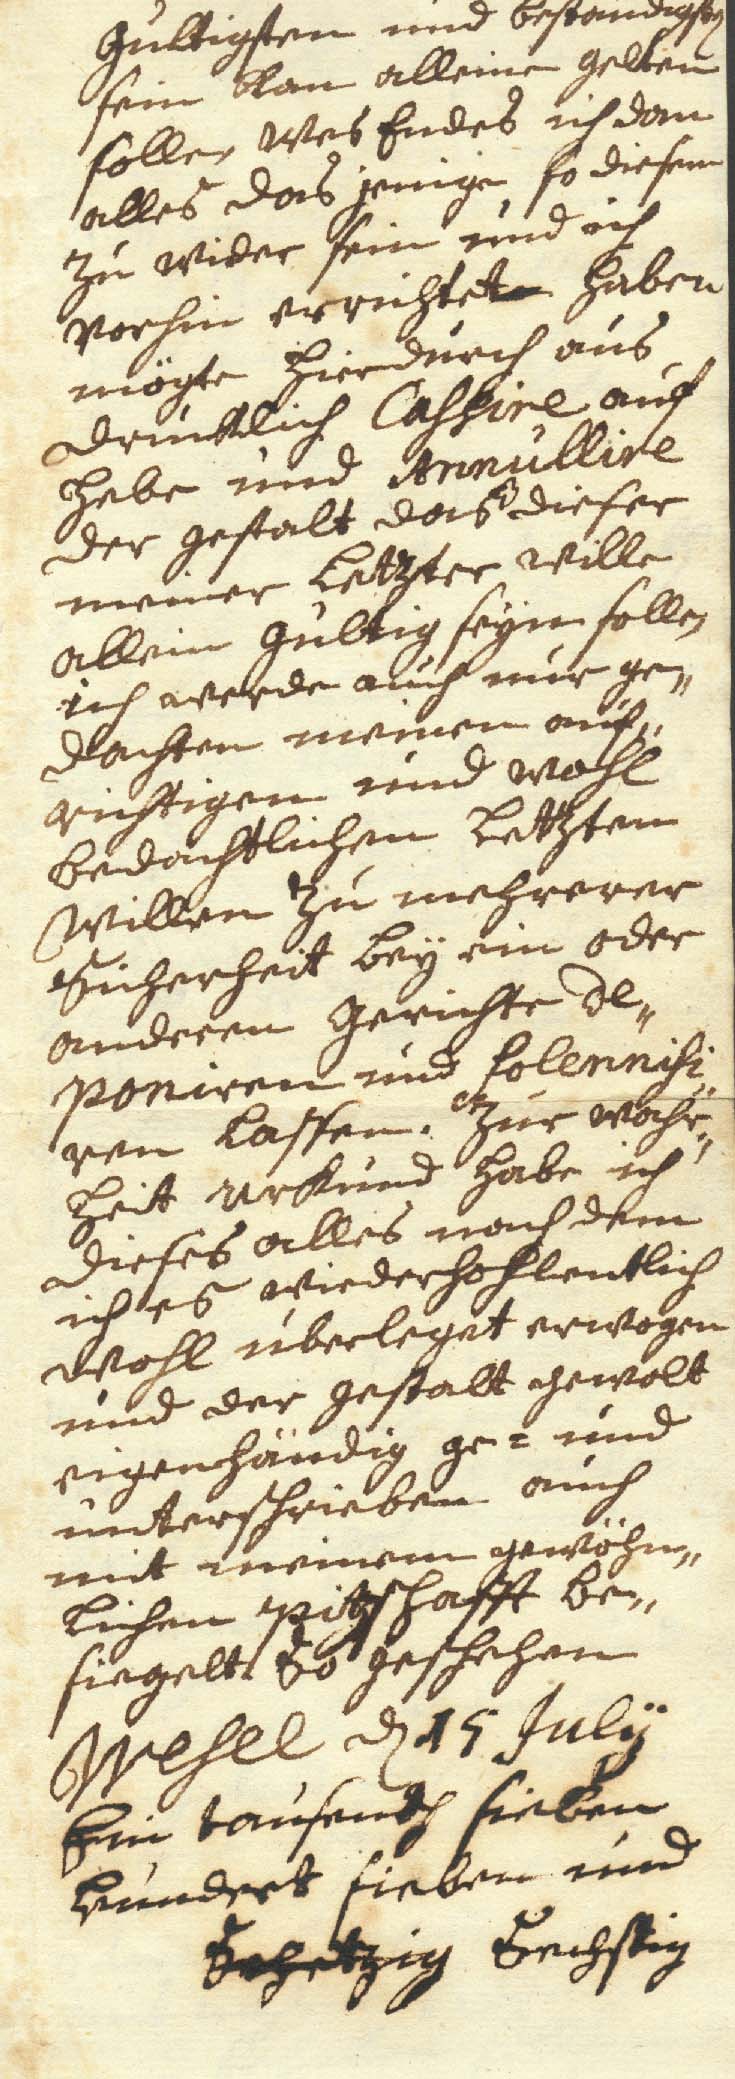 gultigsten und bestandigsten
sein kan alleine gelten
solle, Wes Endes ich dan
alles das jenige, so diesem
zu wider sein und ich
vorhin errichtet haben
mögte hierdurch aus
drucklich Cassire auf
hebe und Annullire
der gestalt das dieser
meiner letzter wille
allein gultig seyn solle,
ich werde auch nur ge„
dachten meinen auf„
richtigen und wohl
bedachtlichen letzten
Willen zu mehrerer
Sicherheit bey ein oder
anderen Gerichte de„
poniren und solennisi„
ren lassen. Zur wahr„
heit urkund habe ich
dieses alles nach dem
ich es wiederhohlentlich
wohl uberleget erwogen
und der gestalt gewolt
eigenhändig ge= und
unterschrieben auch
mit meinem gewöhn„
lichen pitzschafft be„
siegelt. So geschehen
Wesell d 15 July
Ein tausendt sieben
hundert sieben und
Sechszig